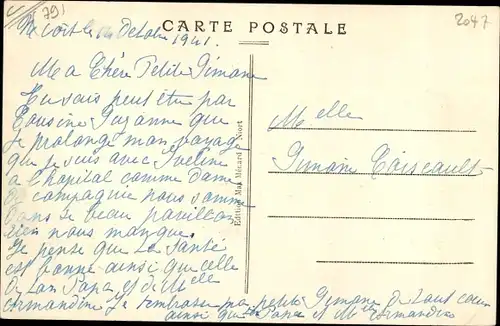 791
2047
CARTE POSTALE
Niort le Octobre 1941.
Ma Chère Petite Simone
Tu sais peut être par
Cousine Suzanne que
Je prolonge mon voyage
que je suis avec Eveline
a l'hopital comme dame
de compagnie nous somme
dans le beau pavillon
rien nous manque.
Je pense que ta santé
est bonne ainsi que celle
de ton Papa et de Melle
ermandine Je t'embrasse ma petite Simone de tout cœur
ainsi que ton Papa et Melle ermandine
Edition Mme Ménard - Niort
Melle
Simone